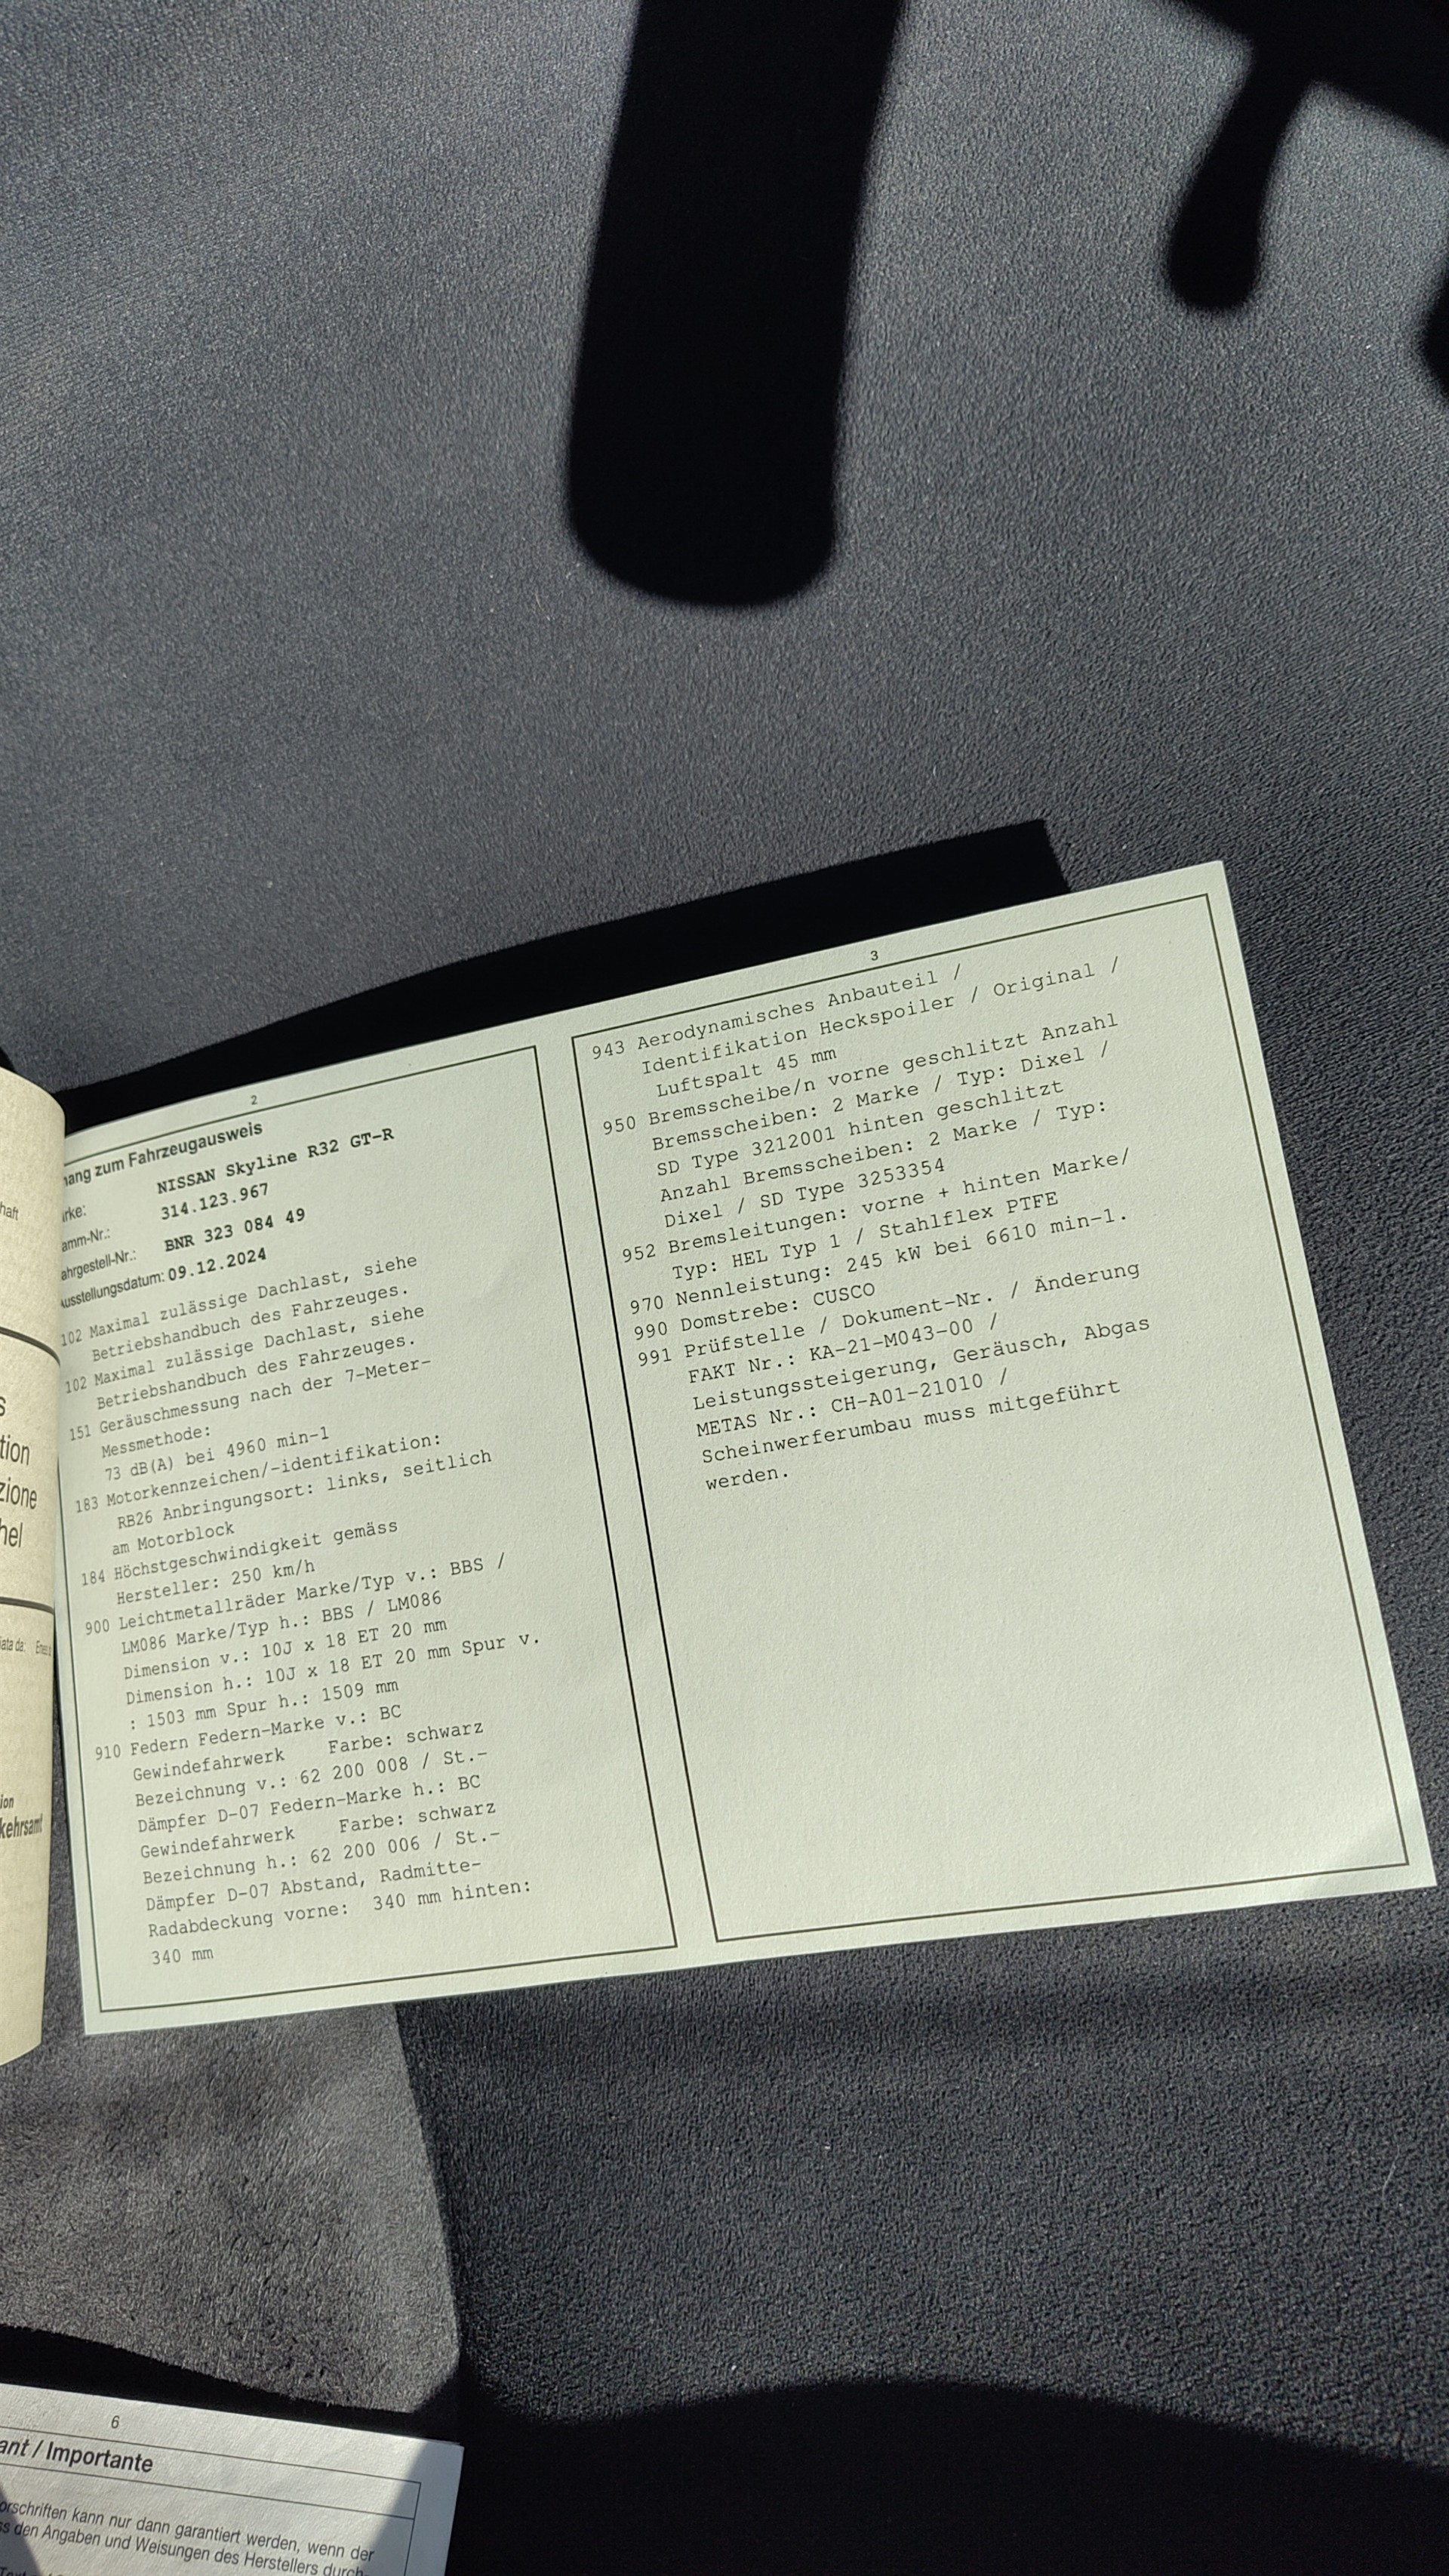 haft
s
tion
zione
hel
iata da:
ion
kehrsamt
2
hang zum Fahrzeugausweis
arke: NISSAN Skyline R32 GT-R
amm-Nr.: 314.123.967
ahrgestell-Nr.: BNR 323 084 49
Ausstellungsdatum: 09.12.2024
102 Maximal zulässige Dachlast, siehe
Betriebshandbuch des Fahrzeuges.
102 Maximal zulässige Dachlast, siehe
Betriebshandbuch des Fahrzeuges.
151 Geräuschmessung nach der 7-Meter-
Messmethode:
73 dB(A) bei 4960 min-1
183 Motorkennzeichen/-identifikation:
RB26 Anbringungsort: links, seitlich
am Motorblock
184 Höchstgeschwindigkeit gemäss
Hersteller: 250 km/h
900 Leichtmetallräder Marke/Typ v.: BBS /
LM086 Marke/Typ h.: BBS / LM086
Dimension v.: 10J x 18 ET 20 mm
Dimension h.: 10J x 18 ET 20 mm Spur v.
: 1503 mm Spur h.: 1509 mm
910 Federn Federn-Marke v.: BC
Gewindefahrwerk Farbe: schwarz
Bezeichnung v.: 62 200 008 / St.-
Dämpfer D-07 Federn-Marke h.: BC
Gewindefahrwerk Farbe: schwarz
Bezeichnung h.: 62 200 006 / St.-
Dämpfer D-07 Abstand, Radmitte-
Radabdeckung vorne: 340 mm hinten:
340 mm
3
943 Aerodynamisches Anbauteil /
Identifikation Heckspoiler / Original /
Luftspalt 45 mm
950 Bremsscheibe/n vorne geschlitzt Anzahl
Bremsscheiben: 2 Marke / Typ: Dixel /
SD Type 3212001 hinten geschlitzt
Anzahl Bremsscheiben: 2 Marke / Typ:
Dixel / SD Type 3253354
952 Bremsleitungen: vorne + hinten Marke/
Typ: HEL Typ 1 / Stahlflex PTFE
970 Nennleistung: 245 kW bei 6610 min-1.
990 Domstrebe: CUSCO
991 Prüfstelle / Dokument-Nr. / Änderung
FAKT Nr.: KA-21-M043-00 /
Leistungssteigerung, Geräusch, Abgas
METAS Nr.: CH-A01-21010 /
Scheinwerferumbau muss mitgeführt
werden.
6
ant / Importante
orschriften kann nur dann garantiert werden, wenn der
ss den Angaben und Weisungen des Herstellers durch-